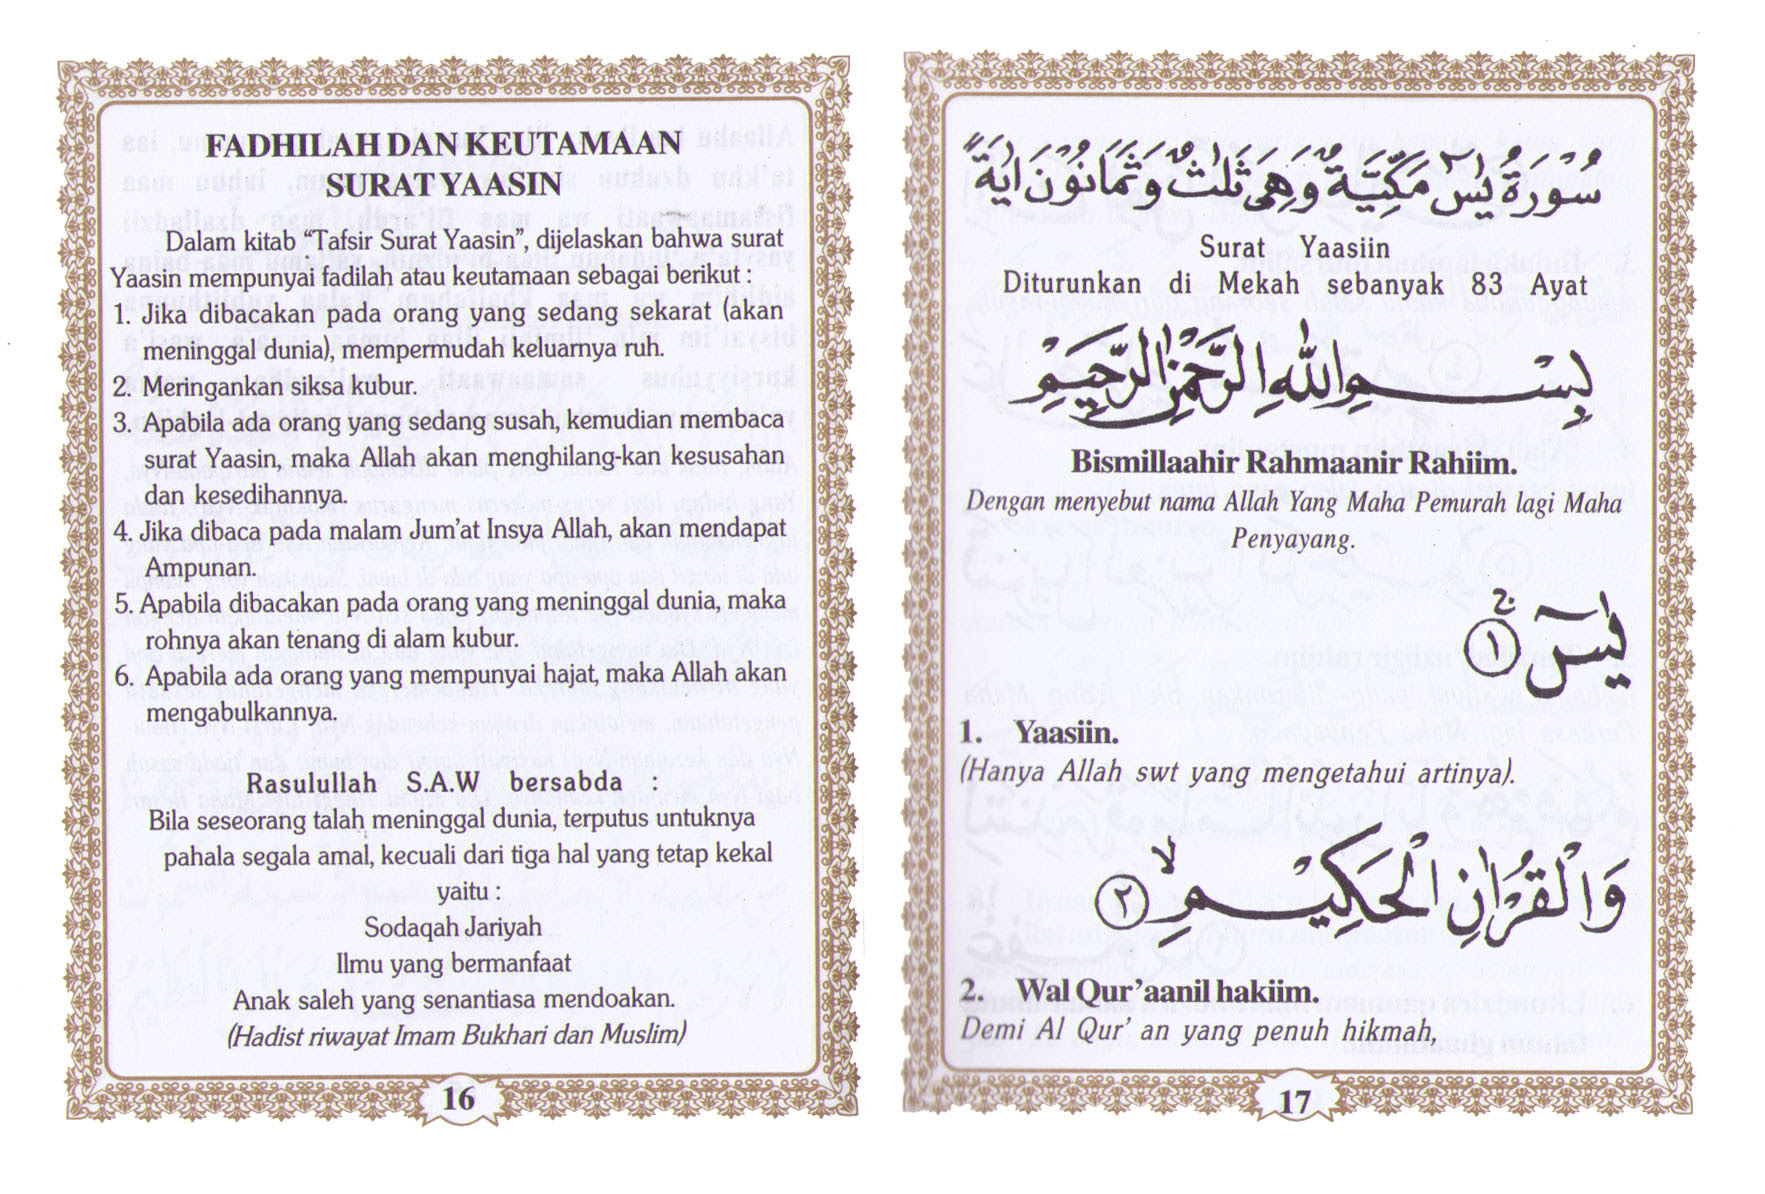 FADHILAH DAN KEUTAMAAN
SURAT YAASIN
Dalam kitab “Tafsir Surat Yaasin”, dijelaskan bahwa surat
Yaasin mempunyai fadilah atau keutamaan sebagai berikut :
1. Jika dibacakan pada orang yang sedang sekarat (akan
meninggal dunia), mempermudah keluarnya ruh.
2. Meringankan siksa kubur.
3. Apabila ada orang yang sedang susah, kemudian membaca
surat Yaasin, maka Allah akan menghilang-kan kesusahan
dan kesedihannya.
4. Jika dibaca pada malam Jum’at Insya Allah, akan mendapat
Ampunan.
5. Apabila dibacakan pada orang yang meninggal dunia, maka
rohnya akan tenang di alam kubur.
6. Apabila ada orang yang mempunyai hajat, maka Allah akan
mengabulkannya.
Rasulullah S.A.W bersabda :
Bila seseorang talah meninggal dunia, terputus untuknya
pahala segala amal, kecuali dari tiga hal yang tetap kekal
yaitu :
Sodaqah Jariyah
Ilmu yang bermanfaat
Anak saleh yang senantiasa mendoakan.
(Hadist riwayat Imam Bukhari dan Muslim)
16
سُوْرَةُ يٰسٓ مَكِّيَّةٌ وَهِيَ ثَلٰثٌ وَثَمَانُوْنَ اٰيَةً
Surat Yaasiin
Diturunkan di Mekah sebanyak 83 Ayat
بِسْــــمِ اللّٰهِ الرَّحْمٰنِ الرَّحِيْمِ
Bismillaahir Rahmaanir Rahiim.
Dengan menyebut nama Allah Yang Maha Pemurah lagi Maha
Penyayang.
يٰسٓ ۚ ﴿١﴾
1. Yaasiin.
(Hanya Allah swt yang mengetahui artinya).
وَالْقُرْاٰنِ الْحَكِيْمِ ۙ ﴿٢﴾
2. Wal Qur’aanil hakiim.
Demi Al Qur’ an yang penuh hikmah,
17